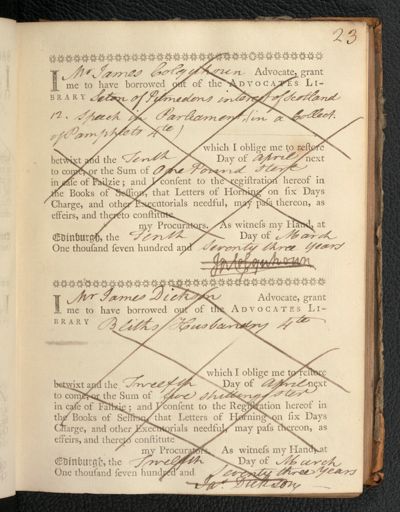 23
I Mr James Colquhoun Advocate, grant
me to have borrowed out of the ADVOCATES LI-
BRARY Seton of Pitmedons interest of Scotland
12. Speech in Parliament (in a Collect.
of Pamphlets 4to)
which I oblige me to restore
betwixt and the Tenth Day of April next
to come, or the Sum of One Pound Sterl
in case of Failzie; and I consent to the Registration hereof in
the Books of Session, that Letters of Horning on six Days
Charge, and other Executorials needful, may pass thereon, as
effeirs, and thereto constitute
my Procurators. As witness my Hand, at
Edinburgh, the Tenth Day of March
One thousand seven hundred and Seventy three years
Ja Colquhoun
I Mr James Dickson Advocate, grant
me to have borrowed out of the ADVOCATES LI-
BRARY Bliths Husbandry 4to
which I oblige me to restore
betwixt and the Twelfth Day of April next
to come, or the Sum of five shillings Sterl
in case of Failzie; and I consent to the Registration hereof in
the Books of Session, that Letters of Horning on six Days
Charge, and other Executorials needful, may pass thereon, as
effeirs, and thereto constitute
my Procurators. As witness my Hand, at
Edinburgh, the Twelfth Day of March
One thousand seven hundred and Seventy three years
Jas Dickson